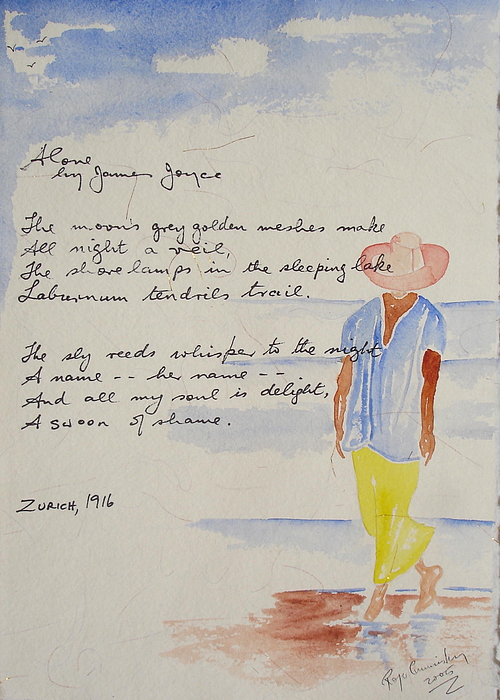 Alone
by James Joyce
The moon's grey golden meshes make
All night a veil,
The shore lamps in the sleeping lake
Laburnum tendrils trail.
The sly reeds whisper to the night
A name -- her name --
And all my soul is delight,
A swoon of shame.
ZURICH, 1916
2006